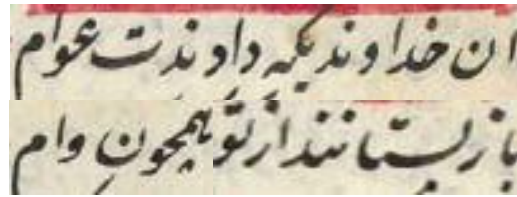 ان خداوندیکه دادندت عوام
باز بستانند از تو همچون وام